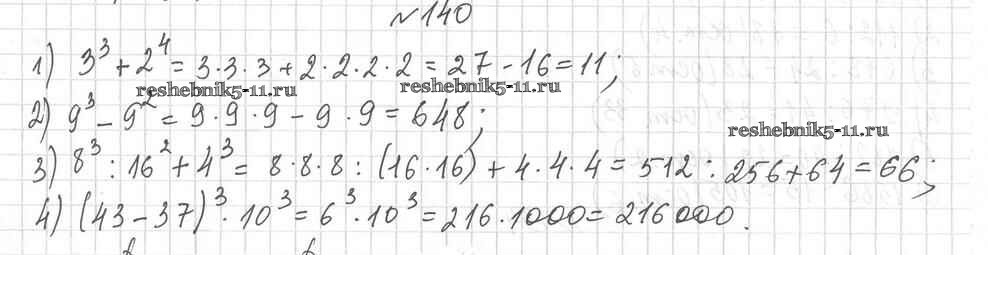 №140
1) 3³ + 2⁴ = 3·3·3 + 2·2·2·2 = 27 - 16 = 11;
reshebnik5-11.ru reshebnik5-11.ru
2) 9³ - 9² = 9·9·9 - 9·9 = 648;
reshebnik5-11.ru
3) 8³ : 16² + 4³ = 8·8·8 : (16·16) + 4·4·4 = 512 : 256 + 64 = 66;
4) (43 - 37)³ · 10³ = 6³ · 10³ = 216 · 1000 = 216 000.